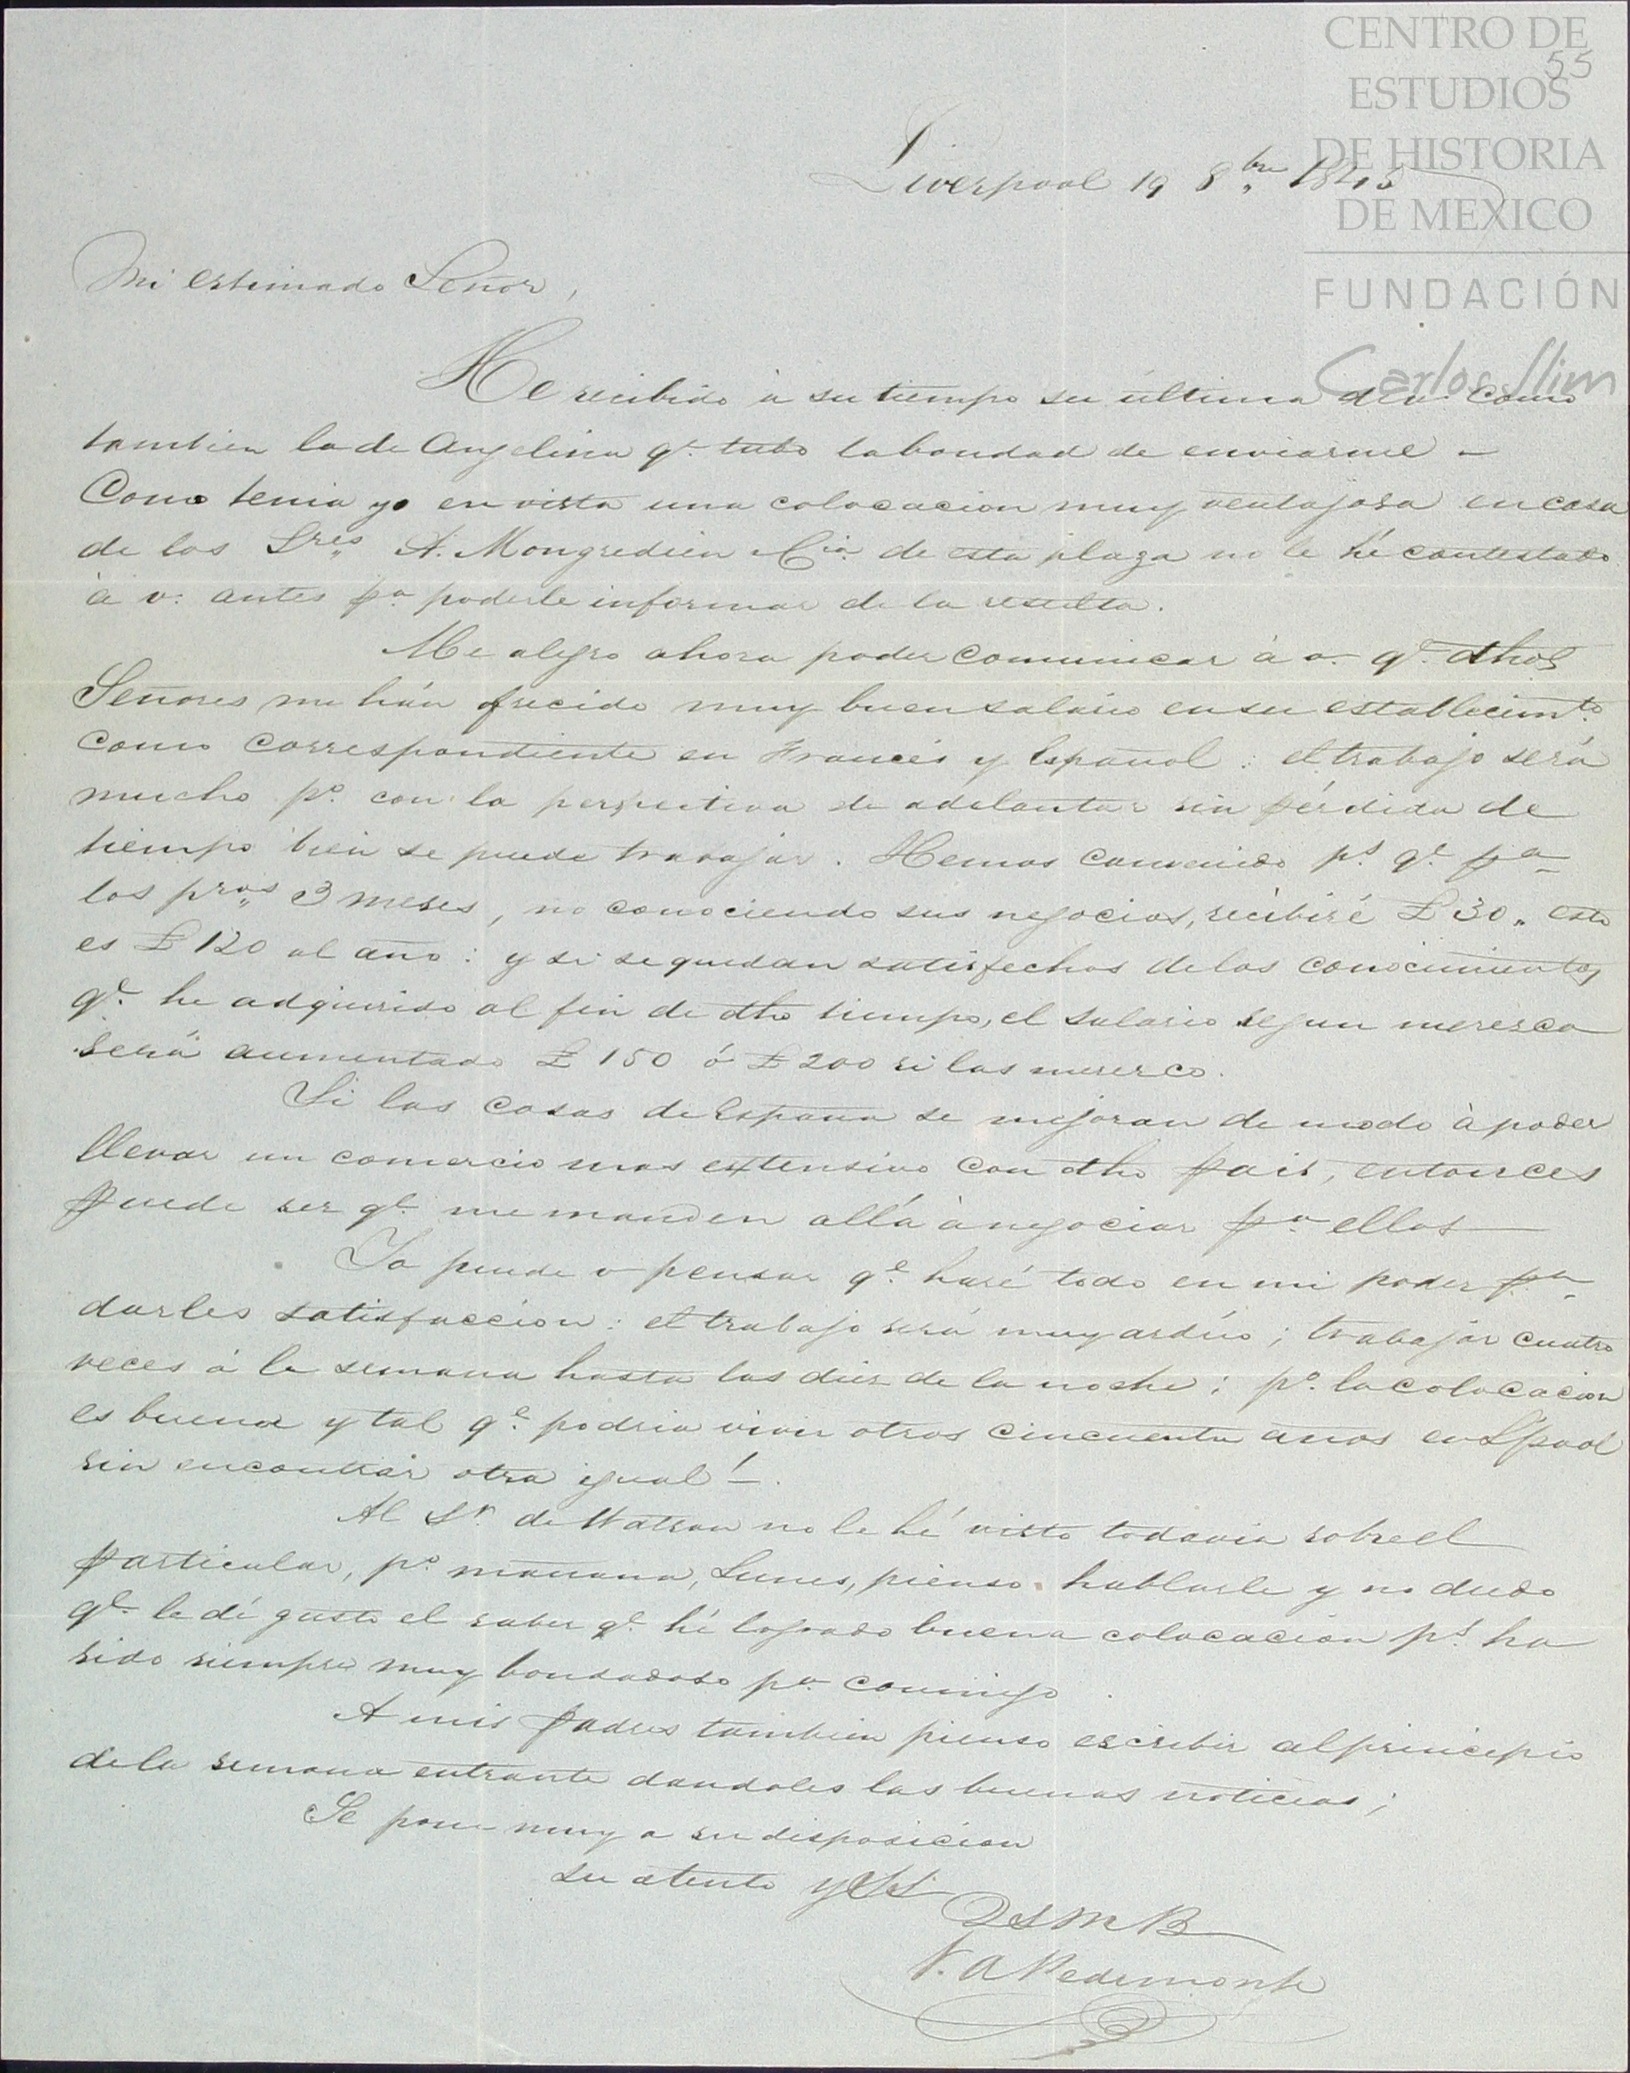 CENTRO DE
55
ESTUDIOS
DE HISTORIA
DE MEXICO
FUNDACIÓN
Carlos Slim
Liverpool 19 8.bre 1845
Mi estimado Señor,
He recibido à su tiempo su ultima de v. como
tambien la de Angelina q.e tubo la bondad de enviarme –
Como tenia yo en vista una colocacion muy ventajosa en casa
de los Sres. A. Mongredien & Cia. de esta plaza no le hé contestado
à v: antes pa. poderle informar de la resulta.
Me alegro ahora poder comunicar à v. q.e dhos
Señores me hán ofrecido muy buen salario en su establecimto.
como correspondiente en Francés y Español : el trabajo será
mucho po. con la perspectiva de adelantar sin pérdida de
tiempo bien se puede trabajar. Hemos convenido ps. q.e pa
los pros. 3 meses, no conociendo sus negocios, recibiré £30,, esto
es £120 al año : y si se quedan satisfechos de los conocimientos
q.e he adquirido al fin de dho tiempo, el salario segun meresca
será aumentado £150 ó £200 si las meresco.
Si las cosas de España se mejoran de modo à poder
llevar un comercio mas extensivo con dho pais, entonces
puede ser q.e me manden allá à negociar pa. ellos —
Ya puede v pensar q.e haré todo en mi poder pa.
darles satisfaccion : el trabajo será muy arduo ; trabajar cuatro
veces á la semana hasta las diez de la noche ; po. la colocacion
es buena y tal q.e podria vivir otros cincuenta anos en Lpool
sin encontrar otra igual ! –.
Al Sr. de Watson no le hé visto todavia sobre el
particular, po. mañana, Lunes, pienso hablarle y no dudo
q.e le dé gusto el saber q.e hé logrado buena colocacion ps. ha
sido siempre muy bondadoso pa. conmigo.
A mis padres tambien pienso escribir al principio
de la semana entrante dandoles las buenas noticias ;
Se pone muy a su disposicion
su atento y SS
QSMB
A Pedemonte